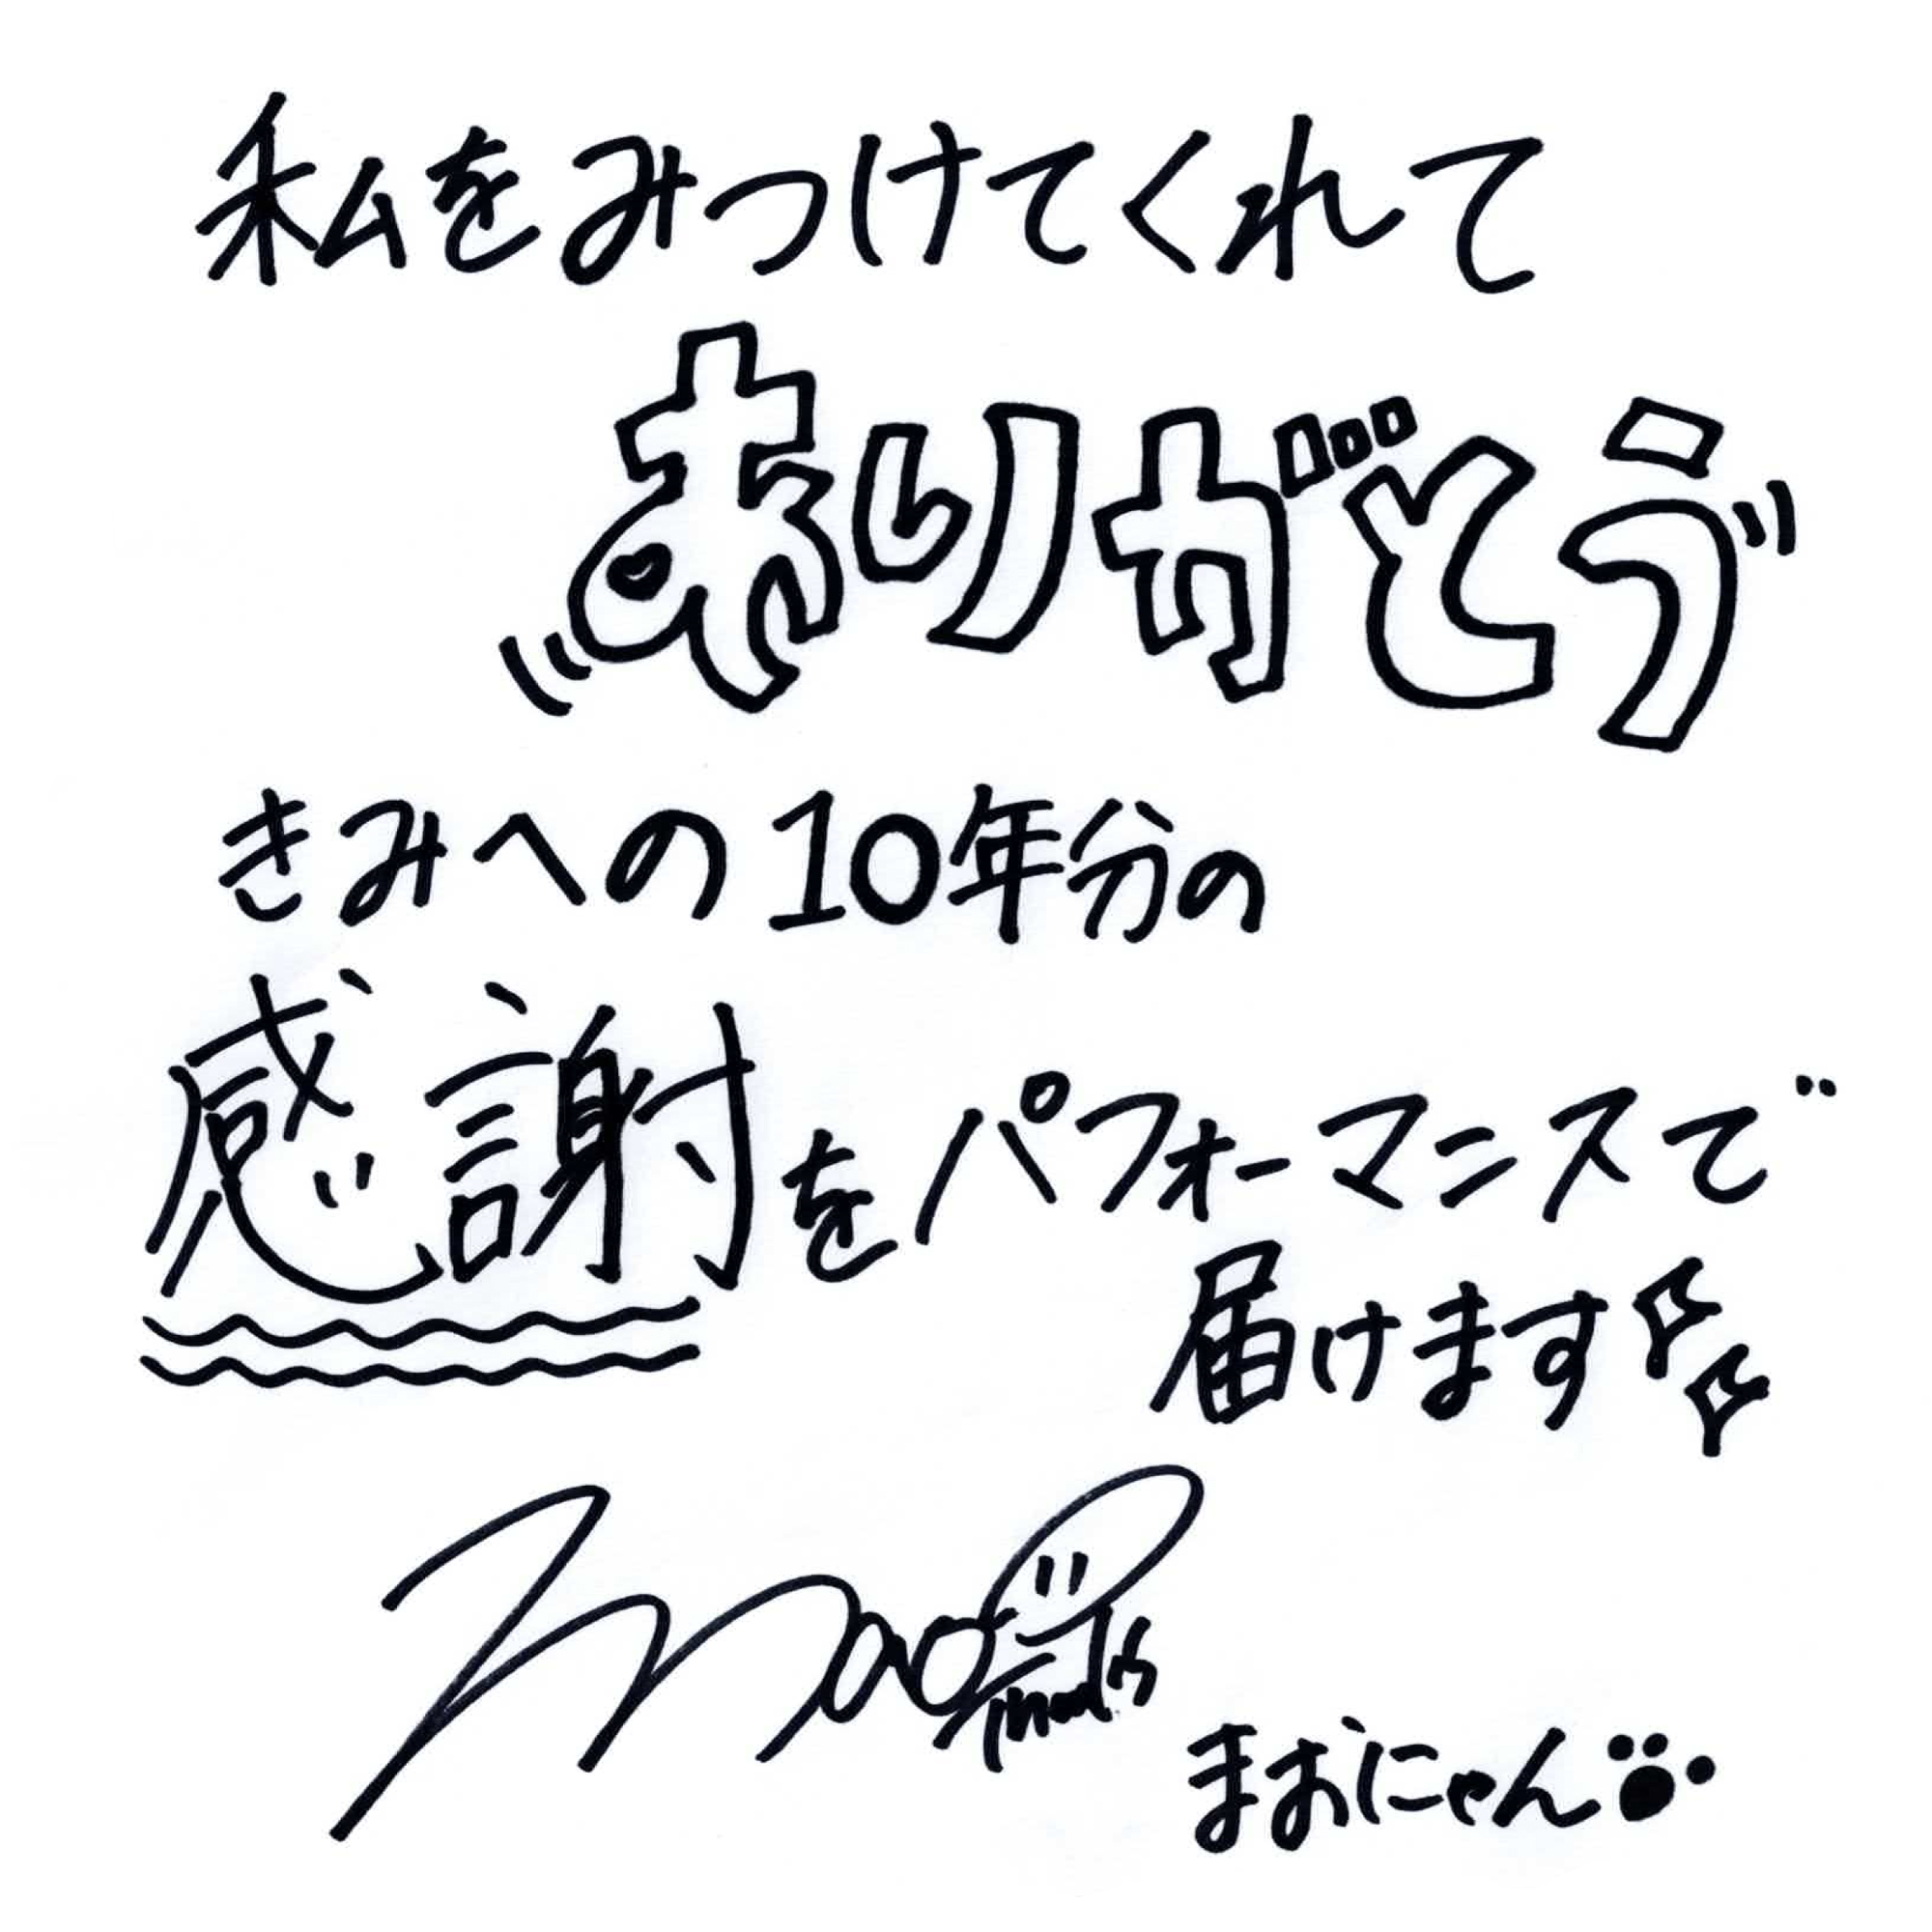 私をみつけてくれて
ありがとう
きみへの10年分の
感謝をパフォーマンスで
届けます
Mao
まおにゃん